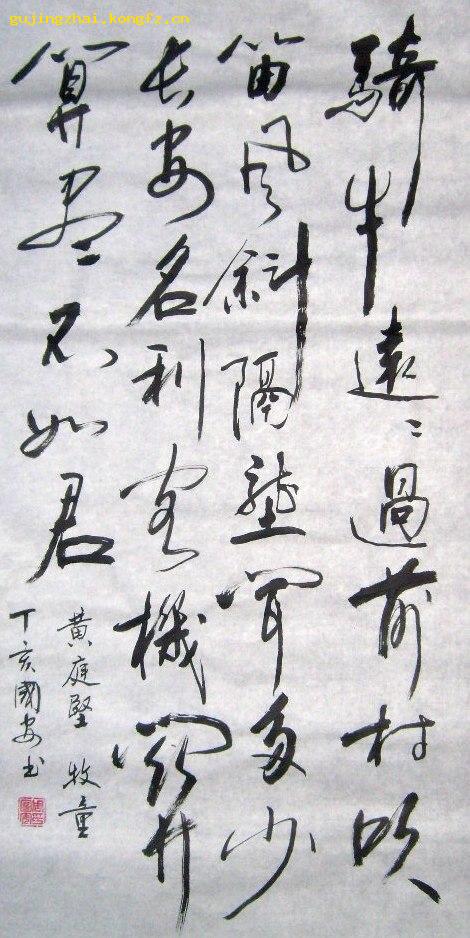 gujingzhai.kongfz.cn
騎牛遠〻過前村吹
笛風斜隔壟聞多少
长安名利客機關
算尽不如君
黄庭堅 牧童
丁亥國安书